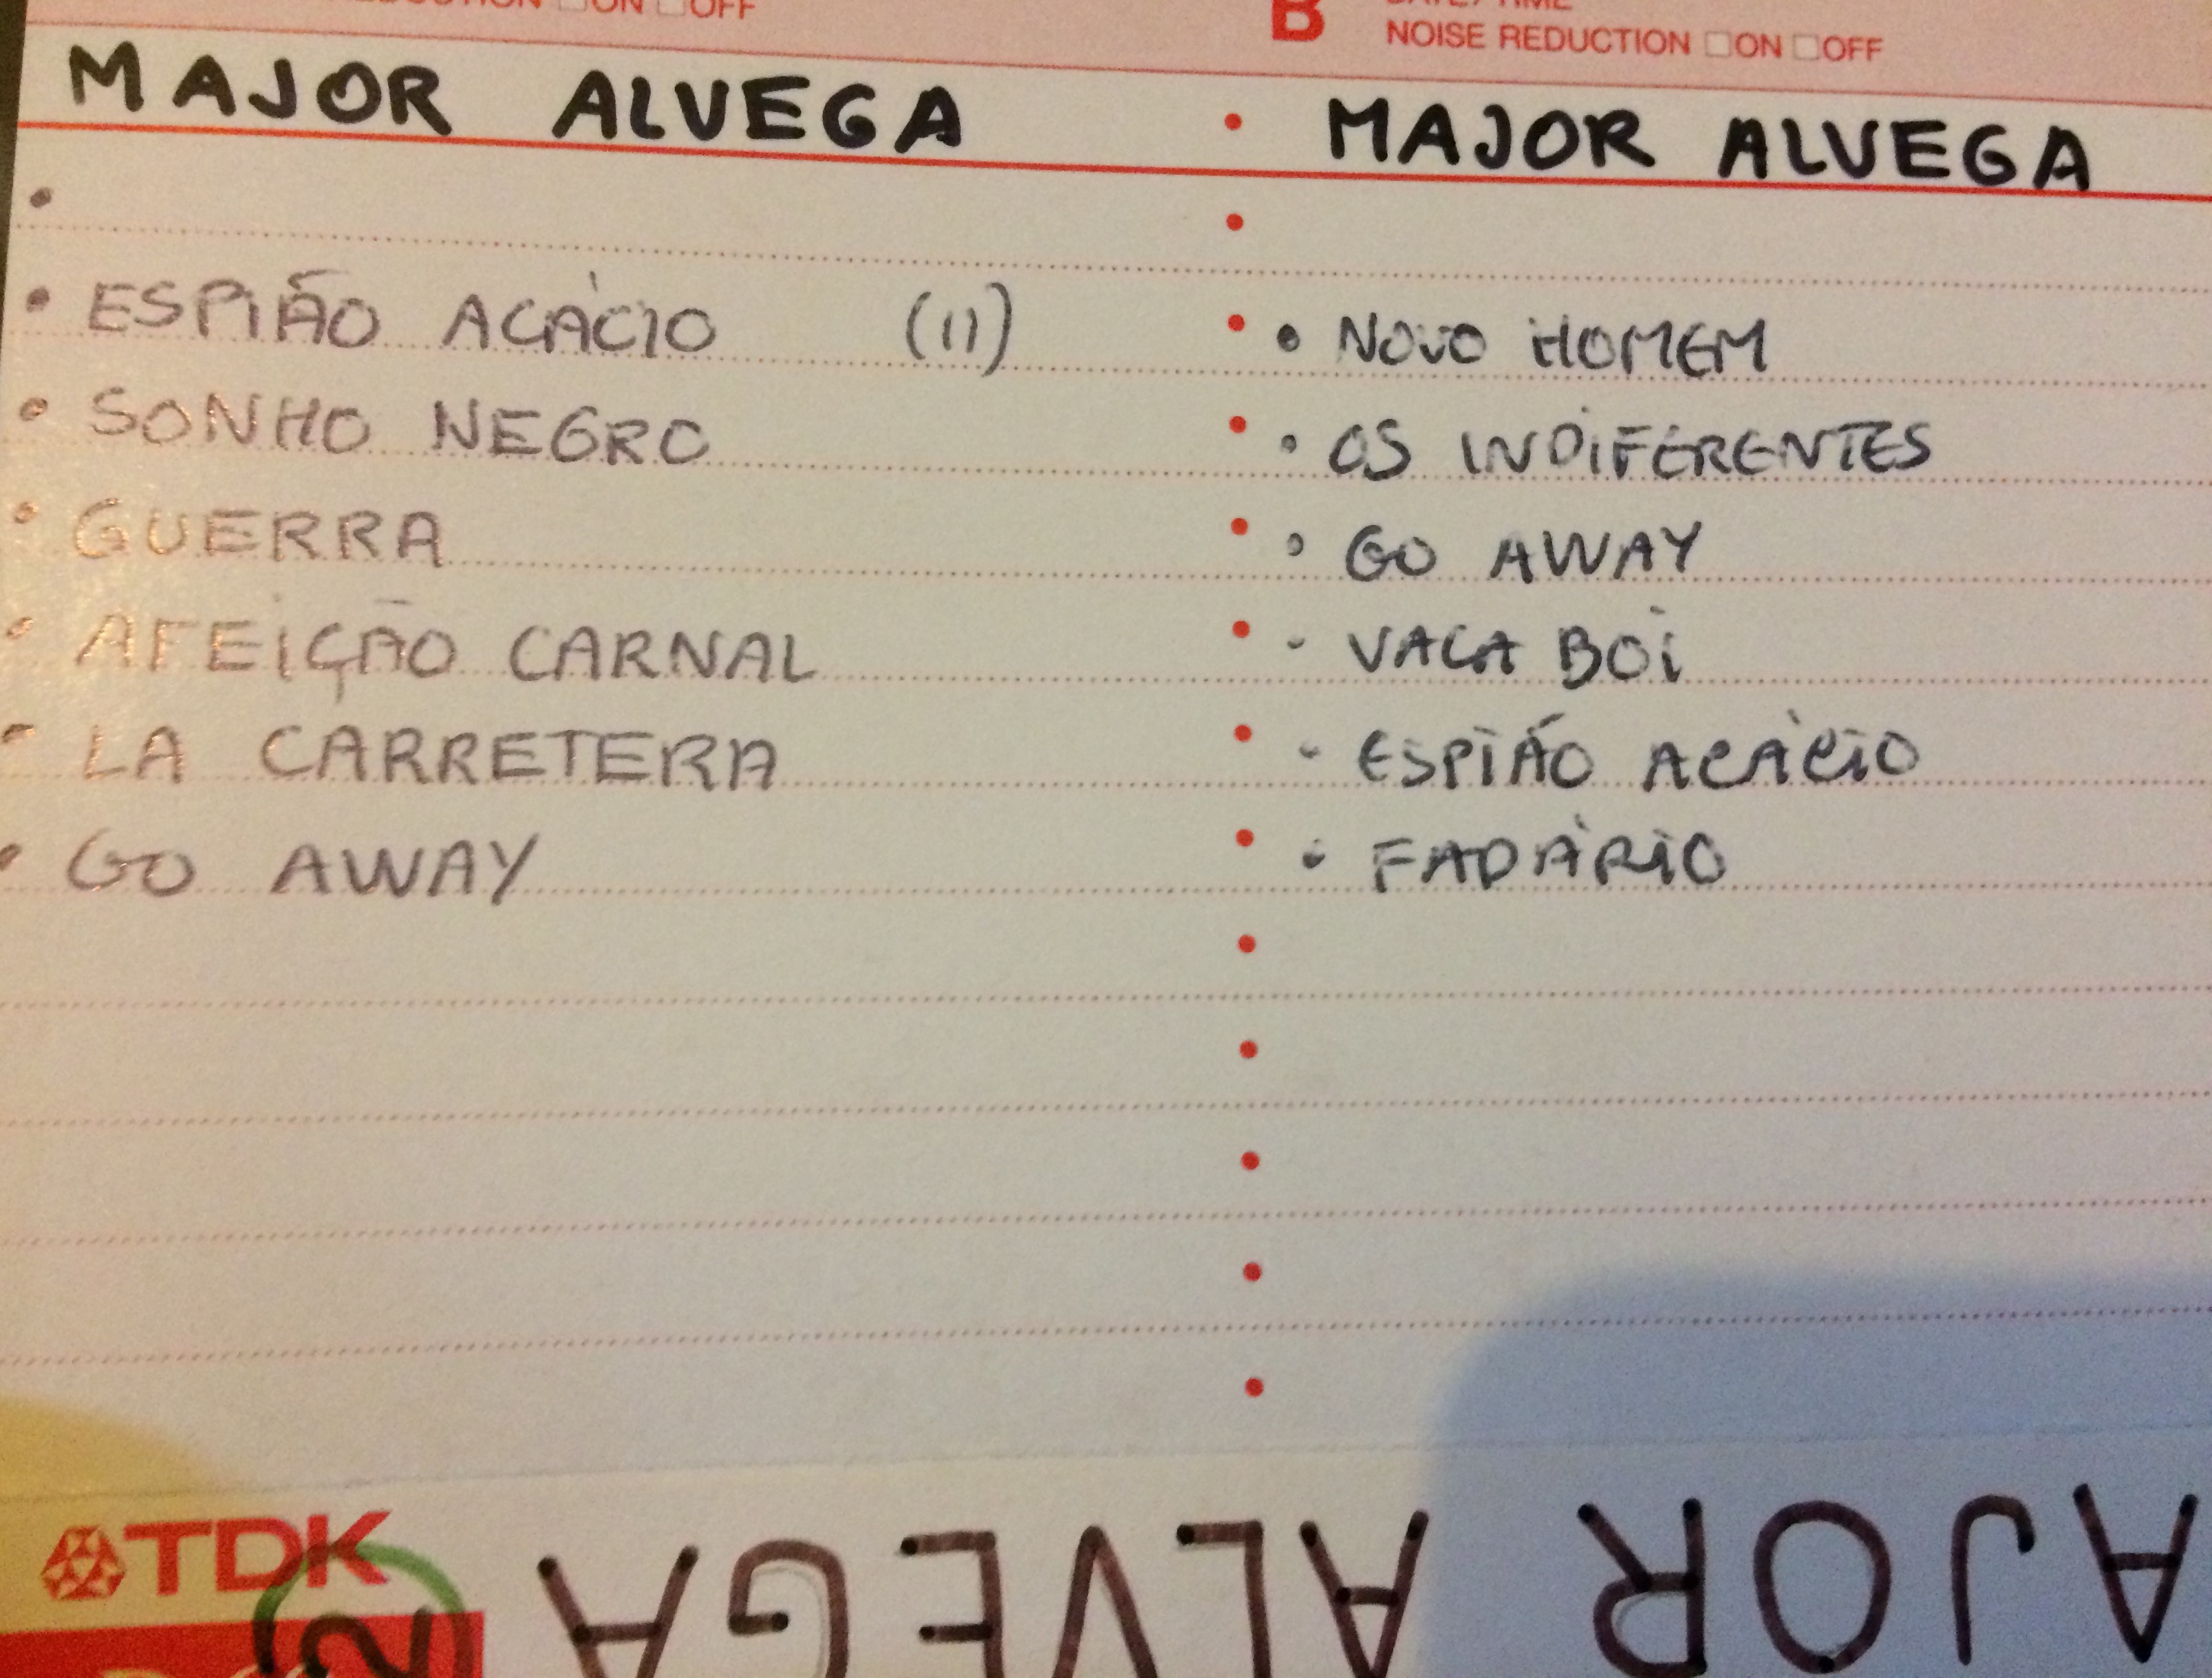 REDUCTION □ON □OFF
B DATE/TIME
NOISE REDUCTION □ON □OFF
MAJOR ALVEGA
• ESPIÃO ACÁCIO (II)
• SONHO NEGRO
• GUERRA
• AFEIÇÃO CARNAL
- LA CARRETERA
• GO AWAY
MAJOR ALVEGA
• NOVO HOMEM
• OS INDIFERENTES
• GO AWAY
- VACA BOI
- ESPIÃO ACÁCIO
• FADÁRIO
TDK
2
AJOR ALVEGA